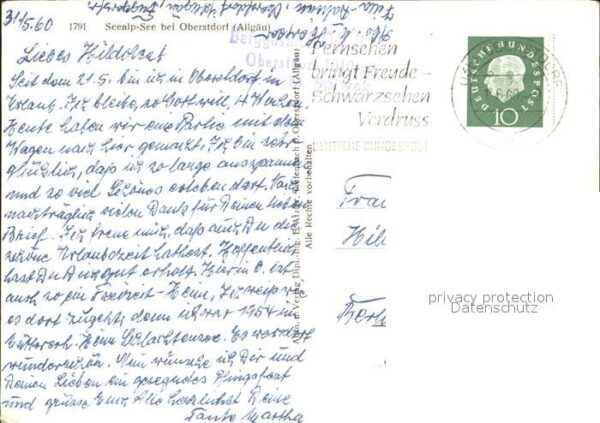 31.5.60
1791 Seealp-See bei Oberstdorf (Allgäu)
Liebes Hildchen
Seit dem 21.5. bin ich in Oberstdorf in
Urlaub. Ich bleibe, so Gott will, 4 Wochen.
Heute haben wir eine Partie mit dem
Wagen nach hier gemacht. Ich bin sehr
glücklich, daß ich so lange ausspannen
und so viel Schönes erleben darf. Hab
nachträglich vielen Dank für Deinen lieben
Brief. Ich freue mich, daß auch Du die
schöne Urlaubszeit hattest. Hoffentlich
hast Du Dich gut erholt. Hier in O. ist
auch so ein Freizeit-Heim, ich weiß wie
es dort zugeht, denn ich war 1954 im
Heim Schlachtensee. Es war dort
wunderschön. Nun wünsche ich Dir und
Deinen Lieben ein gesegnetes Pfingstfest
und grüsse Euch Alle herzlichst Deine
Tante Martha
Oberstdorf
Fernsehen
bringt Freude-
Schwarzsehen
Verdruss
DEUTSCHE BUNDESPOST
DEUTSCHE BUNDESPOST
10
Alle Rechte vorbehalten
Frau
Hil
privacy protection
Datenschutz